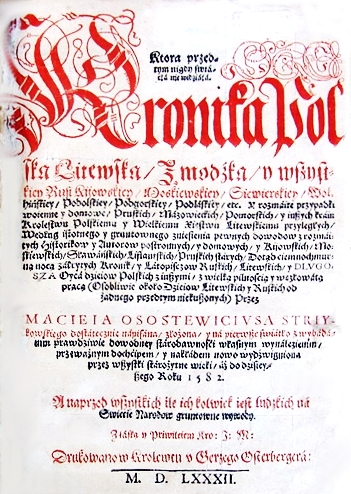 Ktora przed-
tym nigdy świá-
tłá nie widziáła.
Kronika Pol
ska Litewska/ Zmodźka/ y wszystkiey
Rusi Kijowskiey/ Moskiewskiey/ Siewierskiey/ Wol-
hińskiey/ Podolskiey/ Podgorskiey/ Podláskiey/ etc. Y rozmáite przypadki
woienne y domowe/ Pruskich/ Mázowieckich/ Pomorskich/ y inszych kráin
Krolestwu Polskiemu y Wielkiemu Xięstwu Litewskiemu przyległych/
Według istotnego y gruntownego zniesienia pewnych dowodow z rozmái-
tych Historikow y Autorow postronnych/ y domowych/ y Kijowskich/ Mo-
skiewskich/ Sławáńskich/ Liflantskich/ Pruskich stárych/ Dotąd ciemnochmur-
ną nocą zákrytych Kronik/ y Latopiszcow Ruskich/ Litewskich/ y DLVGO-
SZA Oycá dzieiow Polskich z inszymi/ z wielką pilnością y
pracą (Osobliwie około Dzieiow Litewskich y Ruskich od
żadnego przedtym niekuszonych) Przez
MACIEIA OSOSTEWICIVSA STRIY-
kowskiego dostátecznie nápisána/ złożona/ y ná pierwsze świátło
nim prawdziwie dowodney stárodawności własnym wynálezieniem/
przeważnym dochćipem/ y nakłádem nowo wydźwigniona
przez wszystki stárożytne wieki/ áż do dzisiey-
szego Roku 1582.
A naprzod wszystkich ile ich kolwiek iest ludzkich ná
Swiecie Narodow gruntowne wywody.
Z łáską y Priwileiem Kro: J: M:
Drukowano w Krolewcu v Gerzego Osterbergerá:
M. D. LXXXII.